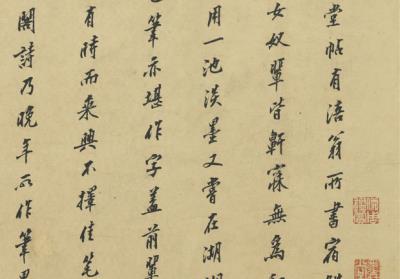 堂帖有涪翁所書宿
女奴輩皆鼾寐無為
用一池淡墨又嘗在湖
筆亦堪作字蓋前輩
有時而來興不擇佳筆
閣詩乃晚年所作筆